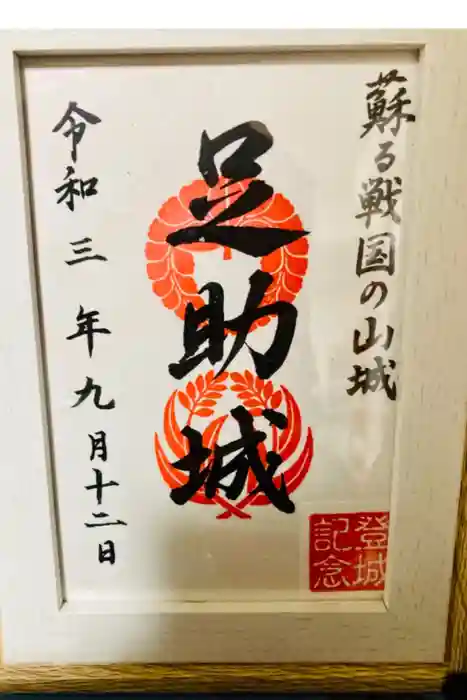 蘇る戦国の山城
足助城
令和三年九月十二日
登城
記念